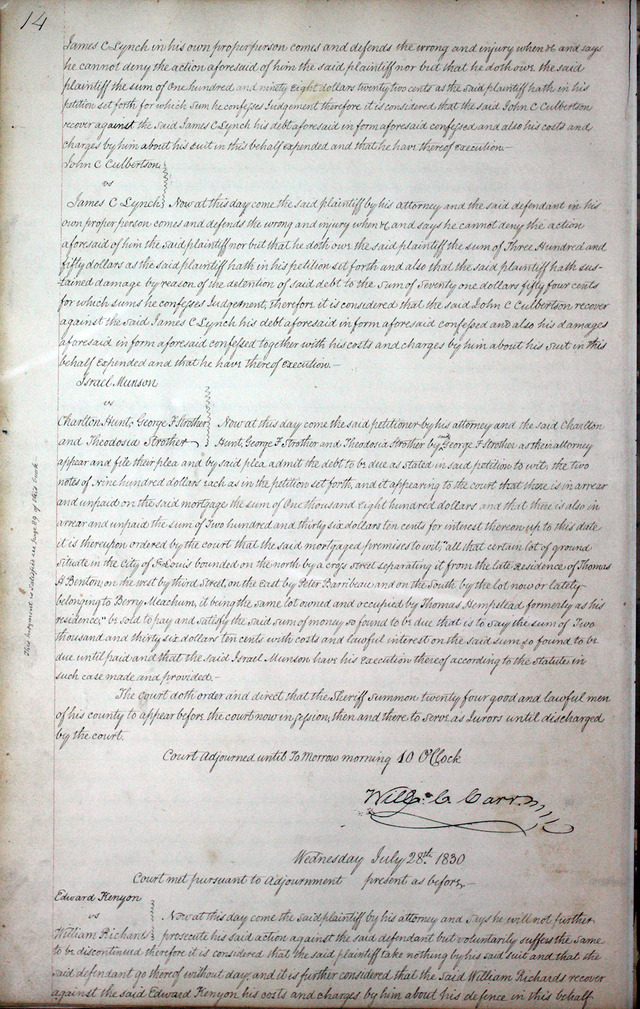 14
James C Lynch in his own proper person comes and defends the wrong and injury when &c and says
he cannot deny the action aforesaid of him the said plaintiff nor but that he doth owe the said
plaintiff the sum of One hundred and ninety Eight dollars twenty two cents as the said plaintiff hath in his
petition set forth for which sum he confesses Judgement therefore it is considered that the said John C Culbertson
recover against the said James C Lynch his debt aforesaid in form aforesaid confessed and also his costs and
charges by him about his suit in this behalf expended and that he have thereof execution.—
John C Culbertson
vs
James C Lynch Now at this day come the said plaintiff by his attorney and the said defendant in his
own proper person comes and defends the wrong and injury when &c and says he cannot deny the action
aforesaid of him the said plaintiff nor but that he doth owe the said plaintiff the sum of Three Hundred and
fifty dollars as the said plaintiff hath in his petition set forth and also that the said plaintiff hath sus-
-tained damage by reason of the detention of said debt to the sum of Seventy one dollars fifty four cents
for which sums he confesses Judgement, Therefore it is considered that the said John C Culbertson recover
against the said James C Lynch his debt aforesaid in form aforesaid confessed and also his damages
aforesaid in form aforesaid confessed together with his costs and charges by him about his suit in this
behalf Expended and that he have thereof Execution.—
Israel Munson
vs
Charlton Hunt, George F Strother Now at this day come the said petitioner by his attorney and the said Charlton
and Theodosia Strother Hunt, George F Strother and Theodosia Strother by George F Strother as their attorney
appear and file their plea and by said plea admit the debt to be due as stated in said petition to wit, the two
notes of nine hundred dollars each as in the petition set forth, and it appearing to the court that there is in arrear
and unpaid on the said mortgage the sum of One thousand Eight hundred dollars and that there is also in
arrear and unpaid the sum of Two hundred and thirty six dollars ten cents for interest thereon up to this date
it is thereupon ordered by the court that the said mortgaged premises to wit, "all that certain lot of ground
situate in the City of St Louis bounded on the north by a cross street separating it from the late residence of Thomas
H Benton, on the west by third street, on the East by Peter Barribeau and on the South by the lot now or lately
belonging to Berry Meachum, it being the same lot owned and occupied by Thomas Hempstead formerly as his
residence," be sold to pay and satisfy the said sum of money so found to be due that is to say the sum of Two
thousand and thirty six dollars ten cents with costs and lawful interest on the said sum so found to be
due until paid and that the said Israel Munson have his Execution thereof according to the statute in
such case made and provided.—
This judgment is satisfied see page 89 of this book
The Court doth order and direct that the Sheriff Summon twenty four good and lawful men
of his county to appear before the court now in session, then and there to serve as Jurors until discharged
by the court.
Court Adjourned until To Morrow morning 10 O'Clock
Will: C. Carr
Wednesday July 28th 1830
Court met pursuant to Adjournment present as before.—
Edward Kenyon
vs Now at this day come the said plaintiff by his attorney and says he will not further
William Richards prosecute his said action against the said defendant but voluntarily suffers the same
to be discontinued therefore it is considered that the said plaintiff take nothing by his said suit and that the
said defendant go thereof without day, and it is further considered that the said William Richards recover
against the said Edward Kenyon his costs and charges by him about his defence in this behalf